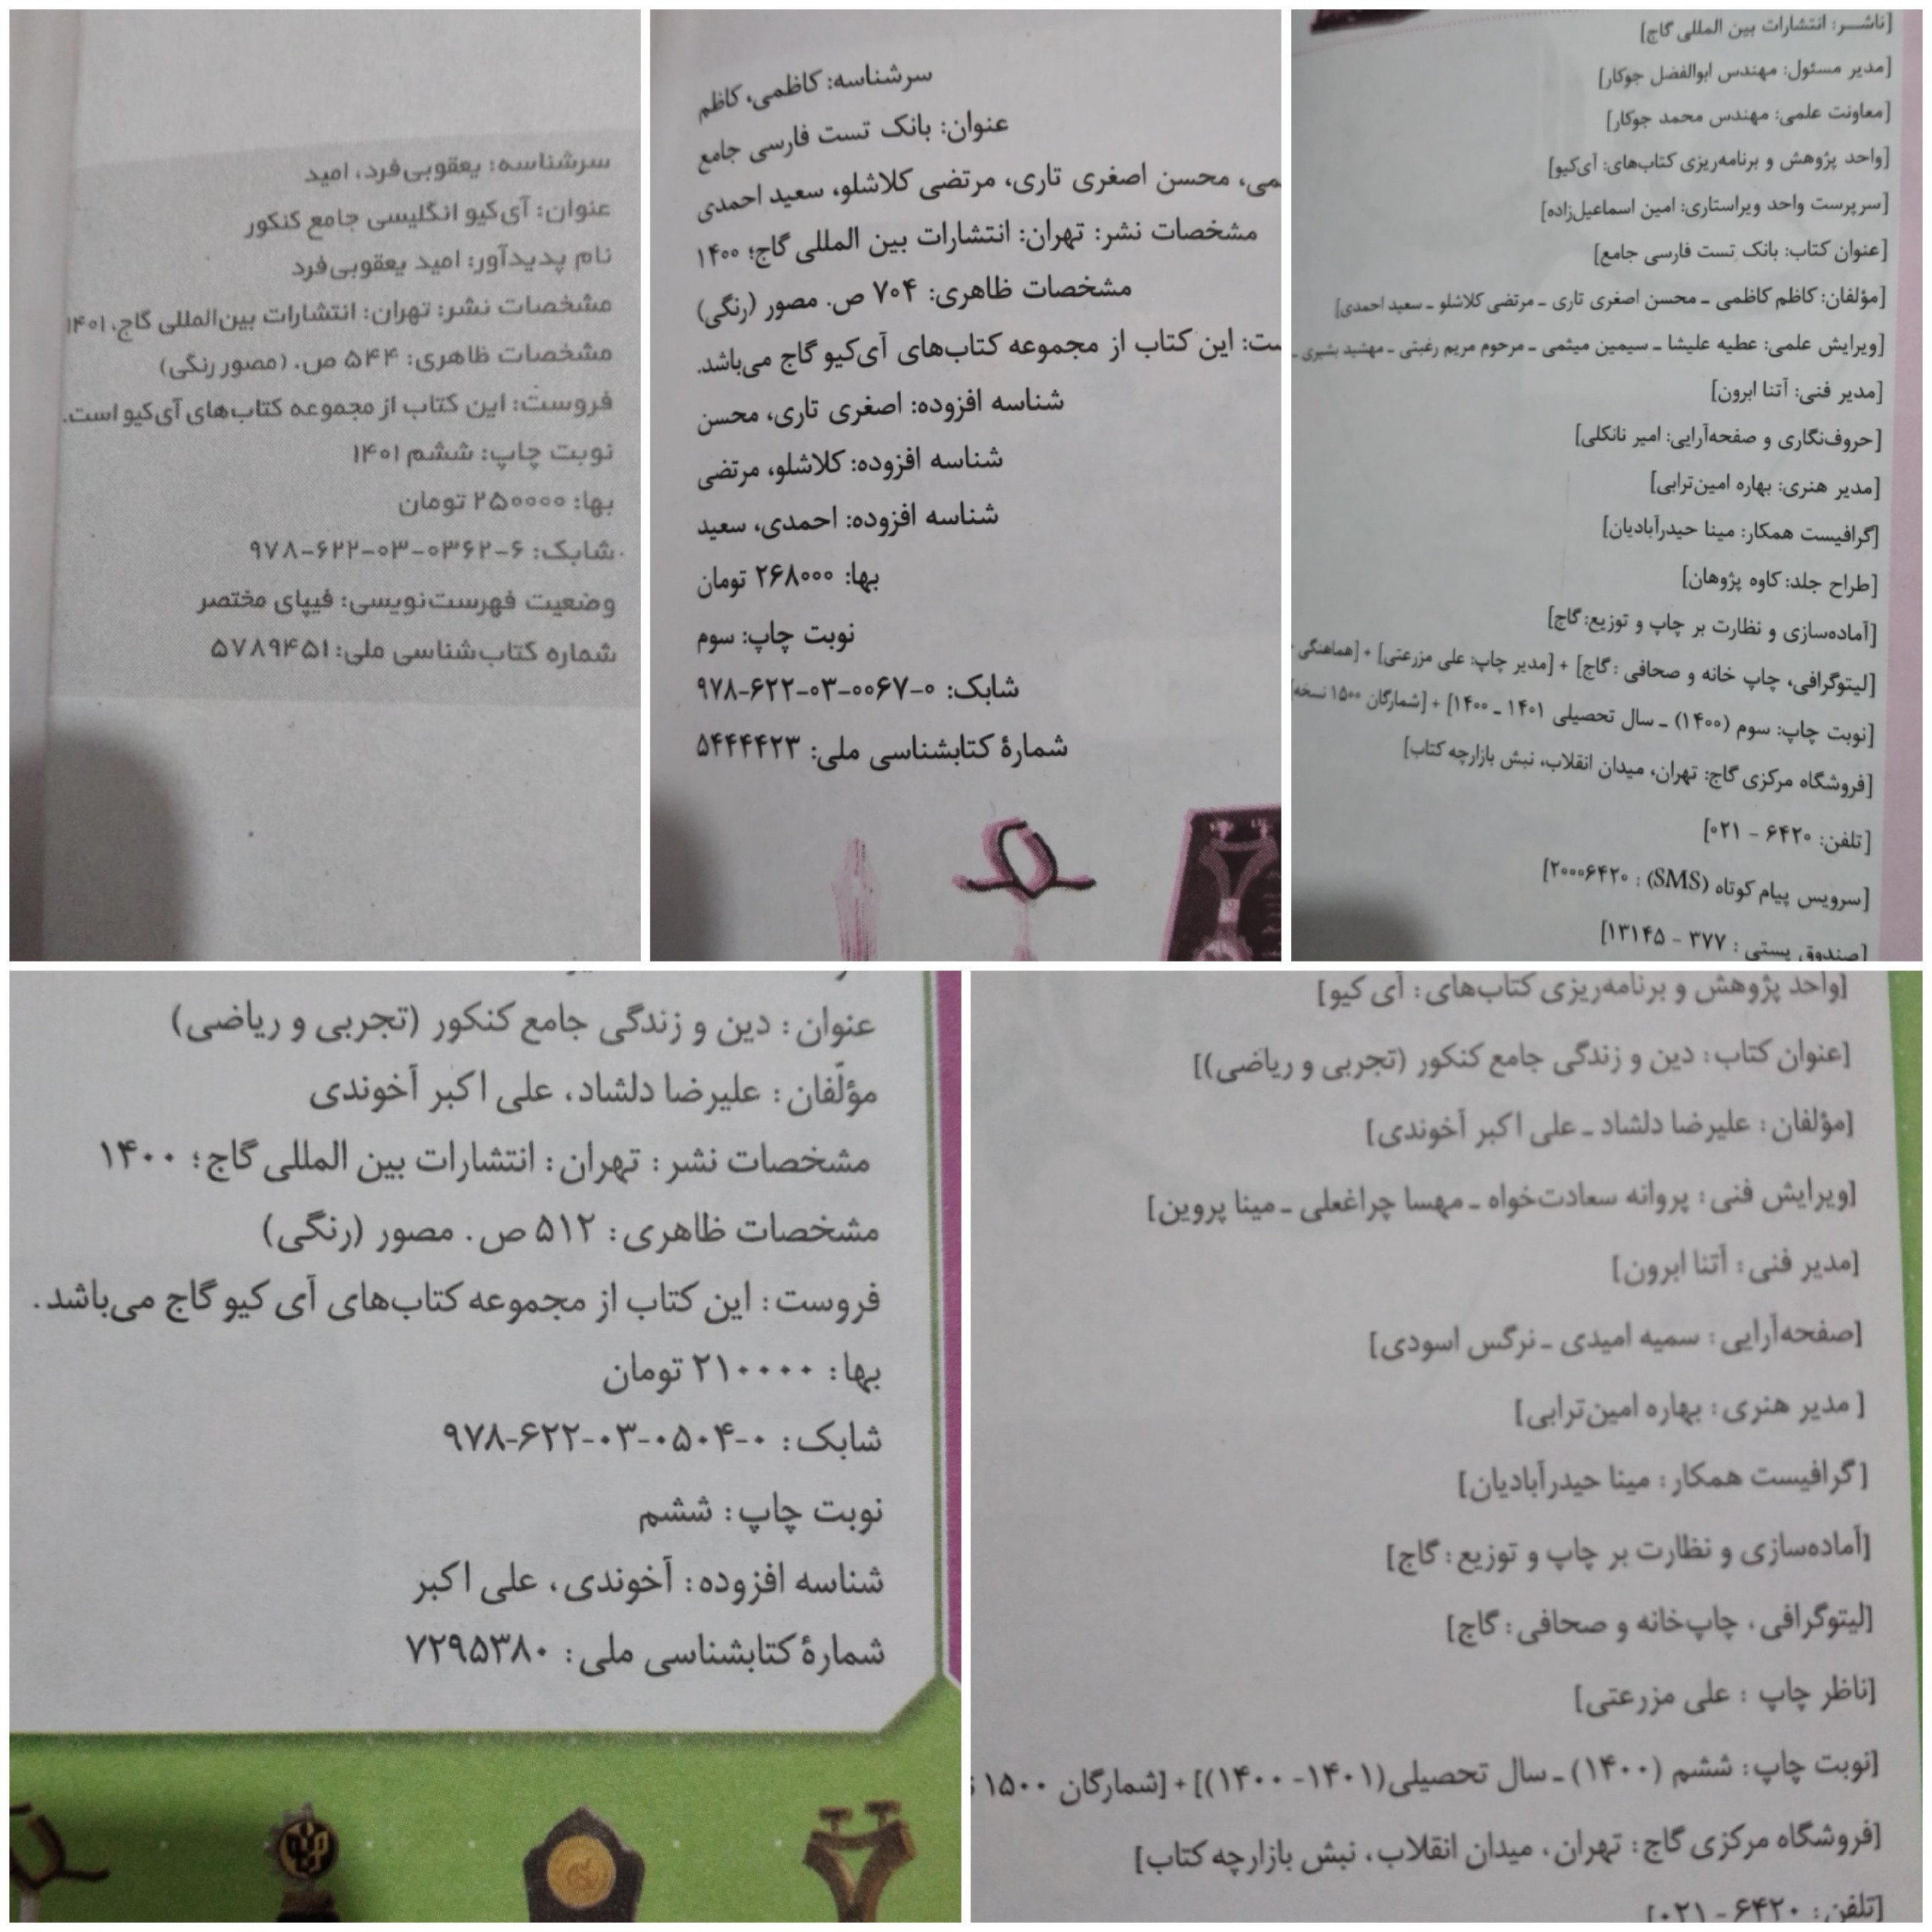 سرشناسه: یعقوبی‌فرد، امید
عنوان: آی‌کیو انگلیسی جامع کنکور
نام پدیدآور: امید یعقوبی‌فرد
مشخصات نشر: تهران: انتشارات بین‌المللی گاج، ۱۴۰۱
مشخصات ظاهری: ۵۴۴ ص. (مصور رنگی)
فروست: این کتاب از مجموعه کتاب‌های آی‌کیو است.
نوبت چاپ: ششم ۱۴۰۱
بها: ۲۵۰۰۰۰ تومان
شابک: ۶-۰۳۶۲-۰۳-۶۲۲-۹۷۸
وضعیت فهرست‌نویسی: فیپای مختصر
شماره کتاب‌شناسی ملی: ۵۷۸۹۴۵۱
سرشناسه: کاظمی، کاظم
عنوان: بانک تست فارسی جامع
محسن اصغری تاری، مرتضی کلاشلو، سعید احمدی
مشخصات نشر: تهران: انتشارات بین المللی گاج؛ ۱۴۰۰
مشخصات ظاهری: ۷۰۴ ص. مصور (رنگی)
این کتاب از مجموعه کتاب‌های آی‌کیو گاج می‌باشد.
شناسه افزوده: اصغری تاری، محسن
شناسه افزوده: کلاشلو، مرتضی
شناسه افزوده: احمدی، سعید
بها: ۲۶۸۰۰۰ تومان
نوبت چاپ: سوم
شابک: ۰-۰۰۶۷-۰۳-۶۲۲-۹۷۸
شمارهٔ کتابشناسی ملی: ۵۴۴۴۴۲۳
[ناشـــر: انتشارات بین المللی گاج]
[مدیر مسئول: مهندس ابوالفضل جوکار]
[معاونت علمی: مهندس محمد جوکار]
[واحد پژوهش و برنامه‌ریزی کتاب‌های: آی‌کیو]
[سرپرست واحد ویراستاری: امین اسماعیل‌زاده]
[عنوان کتاب: بانک تست فارسی جامع]
[مؤلفان: کاظم کاظمی ـ محسن اصغری تاری ـ مرتضی کلاشلو ـ سعید احمدی]
[ویرایش علمی: عطیه علیشا ـ سیمین میثمی ـ مرحوم مریم رغبتی ـ مهشید بشیری ـ
[مدیر فنی: آتنا ابرون]
[حروف‌نگاری و صفحه‌آرایی: امیر نانکلی]
[مدیر هنری: بهاره امین‌ترابی]
[گرافیست همکار: مینا حیدرآبادیان]
[طراح جلد: کاوه پژوهان]
[آماده‌سازی و نظارت بر چاپ و توزیع: گاج]
[لیتوگرافی، چاپ خانه و صحافی : گاج] + [مدیر چاپ: علی مزرعتی] + [هماهنگی
[نوبت چاپ: سوم (۱۴۰۰) ـ سال تحصیلی ۱۴۰۱ ـ ۱۴۰۰] + [شمارگان ۱۵۰۰ نسخه]
[فروشگاه مرکزی گاج: تهران، میدان انقلاب، نبش بازارچه کتاب]
[تلفن: ۶۴۲۰ - ۰۲۱]
[سرویس پیام کوتاه (SMS) : ۲۰۰۰۶۴۲۰]
[صندوق پستی : ۳۷۷ - ۱۳۱۴۵]
عنوان : دین و زندگی جامع کنکور (تجربی و ریاضی)
مؤلّفان : علیرضا دلشاد، علی اکبر آخوندی
مشخصات نشر : تهران : انتشارات بین المللی گاج؛ ۱۴۰۰
مشخصات ظاهری : ۵۱۲ ص. مصور (رنگی)
فروست : این کتاب از مجموعه کتاب‌های آی کیو گاج می‌باشد.
بها : ۲۱۰۰۰۰ تومان
شابک : ۰-۰۵۰۴-۰۳-۶۲۲-۹۷۸
نوبت چاپ : ششم
شناسه افزوده : آخوندی، علی اکبر
شمارهٔ کتابشناسی ملی : ۷۲۹۵۳۸۰
[واحد پژوهش و برنامه‌ریزی کتاب‌های : آی کیو]
[عنوان کتاب : دین و زندگی جامع کنکور (تجربی و ریاضی)]
[مؤلفان : علیرضا دلشاد ـ علی اکبر آخوندی]
[ویرایش فنی : پروانه سعادت‌خواه ـ مهسا چراغعلی ـ مینا پروین]
[مدیر فنی : آتنا ابرون]
[صفحه‌آرایی : سمیه امیدی ـ نرگس اسودی]
[مدیر هنری : بهاره امین‌ترابی]
[گرافیست همکار : مینا حیدرآبادیان]
[آماده‌سازی و نظارت بر چاپ و توزیع : گاج]
[لیتوگرافی، چاپ‌خانه و صحافی : گاج]
[ناظر چاپ : علی مزرعتی]
[نوبت چاپ : ششم (۱۴۰۰) ـ سال تحصیلی (۱۴۰۱- ۱۴۰۰)] + [شمارگان ۱۵۰۰
[فروشگاه مرکزی گاج : تهران، میدان انقلاب، نبش بازارچه کتاب]
[تلفن : ۶۴۲۰ - ۰۲۱]